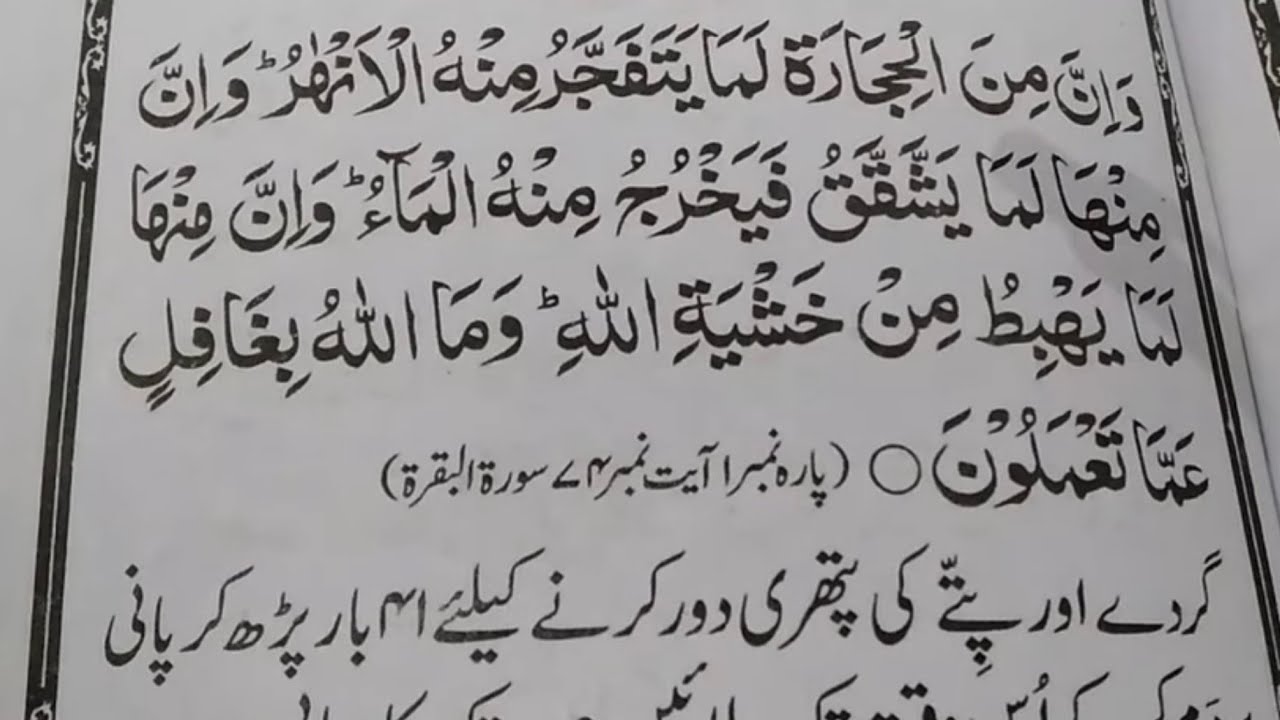 وَاِنَّ مِنَ الْحِجَارَةِ لَمَا یَتَفَجَّرُ مِنْهُ الْاَنْهٰرُ ؕ وَاِنَّ
مِنْهَا لَمَا یَشَّقَّقُ فَیَخْرُجُ مِنْهُ الْمَآءُ ؕ وَاِنَّ مِنْهَا
لَمَا یَهْبِطُ مِنْ خَشْیَةِ اللّٰهِ ؕ وَمَا اللّٰهُ بِغَافِلٍ
عَمَّا تَعْمَلُوْنَ ○ (پارہ نمبر ۱ آیت نمبر ۷۴ سورۃ البقرۃ)
گردے اور پِتّے کی پتھری دور کرنے کیلئے ۴۱ بار پڑھ کر پانی